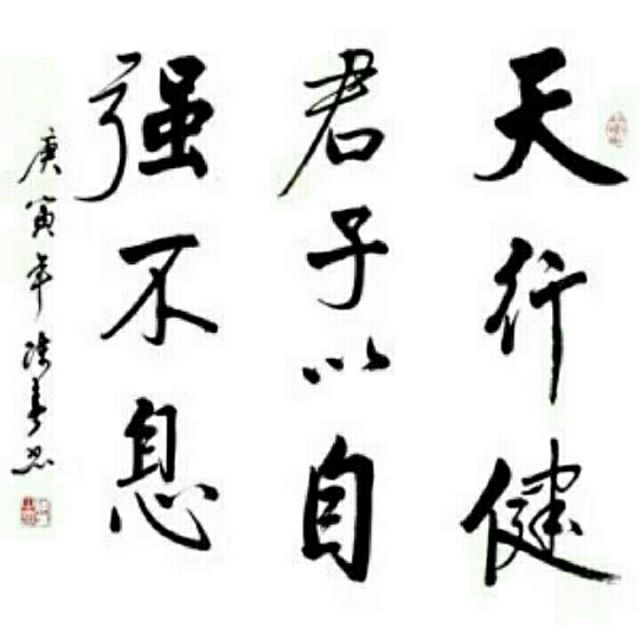 天行健
君子以自
强不息
庚寅年